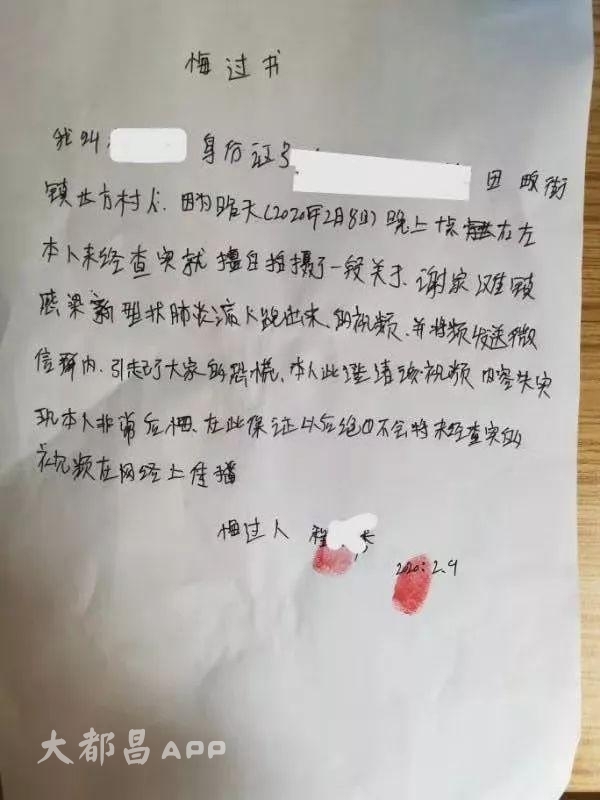 悔过书
我叫: 身份证号 田畈街
镇 方村人. 因为昨天(2020年2月8日)晚上十点 左右
本人未经查实就擅自拍摄了一段关于谢家滩镇
感染新型状肺炎病人跑出来的视频. 并将频发送微
信群内. 引起了大家的恐慌. 本人此澄清该视频内容失实
现本人非常后悔. 在此保证以后绝 不会将未经查实的
视频在网经上传播
悔过人 程
2020.2.9
大都昌APP